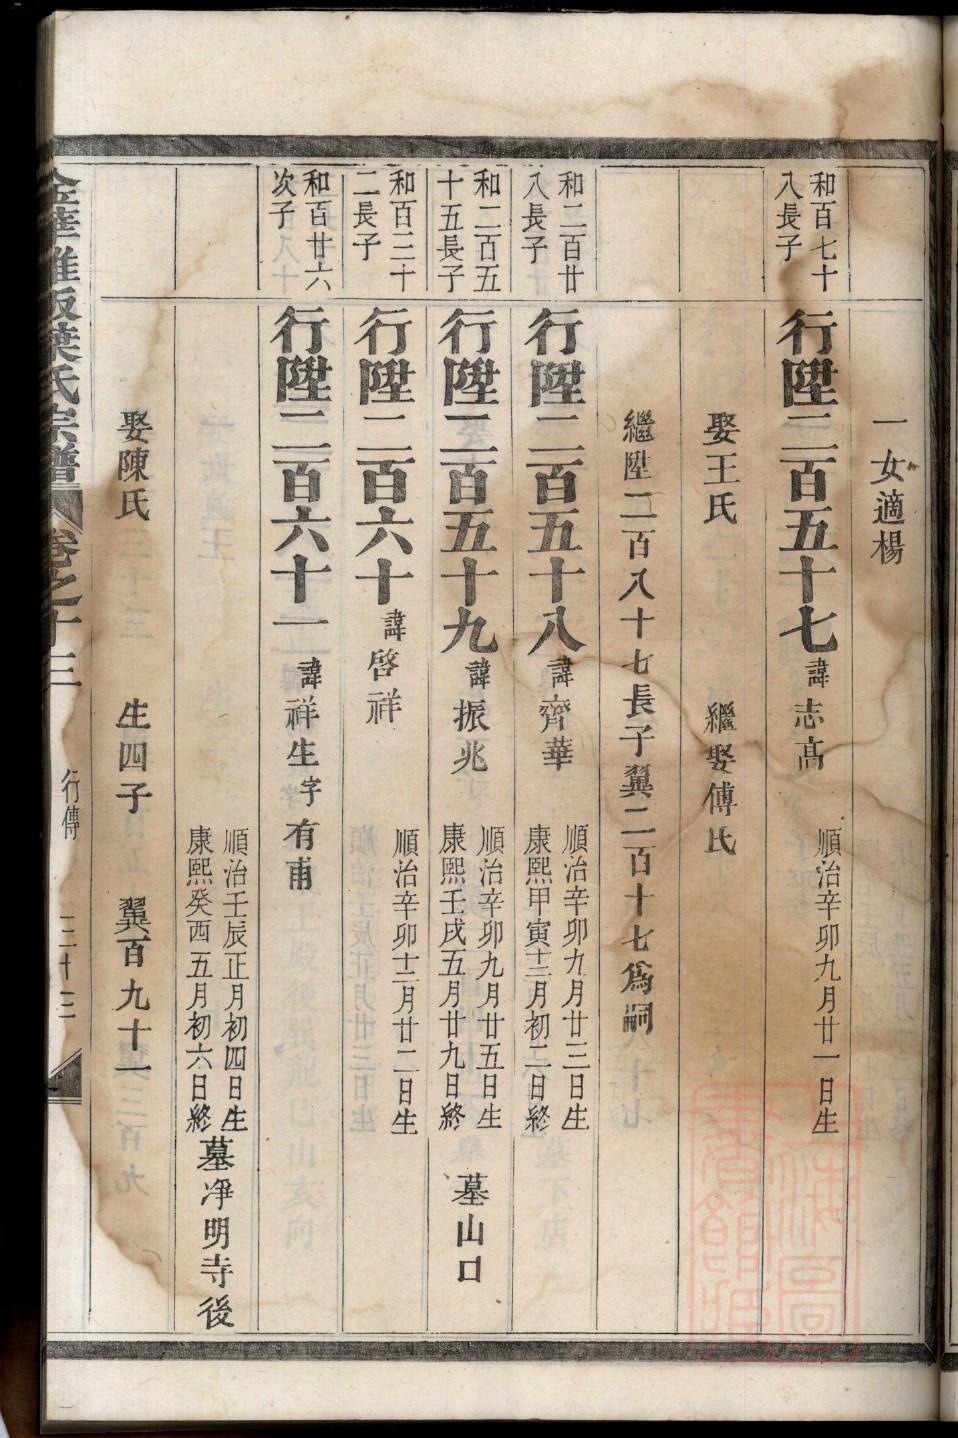 一女適楊
和百七十
八長子
行陞二百五十七諱志高
順治辛卯九月廿一日生
娶王氏　繼娶傅氏
繼陞二百八十七長子翼二百十七爲嗣
和二百廿
八長子
行陞二百五十八諱齊華
順治辛卯九月廿三日生
康熙甲寅十二月初二日終
和二百五
十五長子
行陞二百五十九諱振兆
順治辛卯九月廿五日生
康熙壬戌五月廿九日終
墓山口
和百三十
二長子
行陞二百六十諱啓祥
順治辛卯十二月廿二日生
和百廿六
次子
行陞二百六十一諱祥生字有甫
順治壬辰正月初四日生
康熙癸酉五月初六日終
墓淨明寺後
娶陳氏　生四子　翼百九十一
金華雅畈葉氏宗譜　卷之十三　行傳　三十三